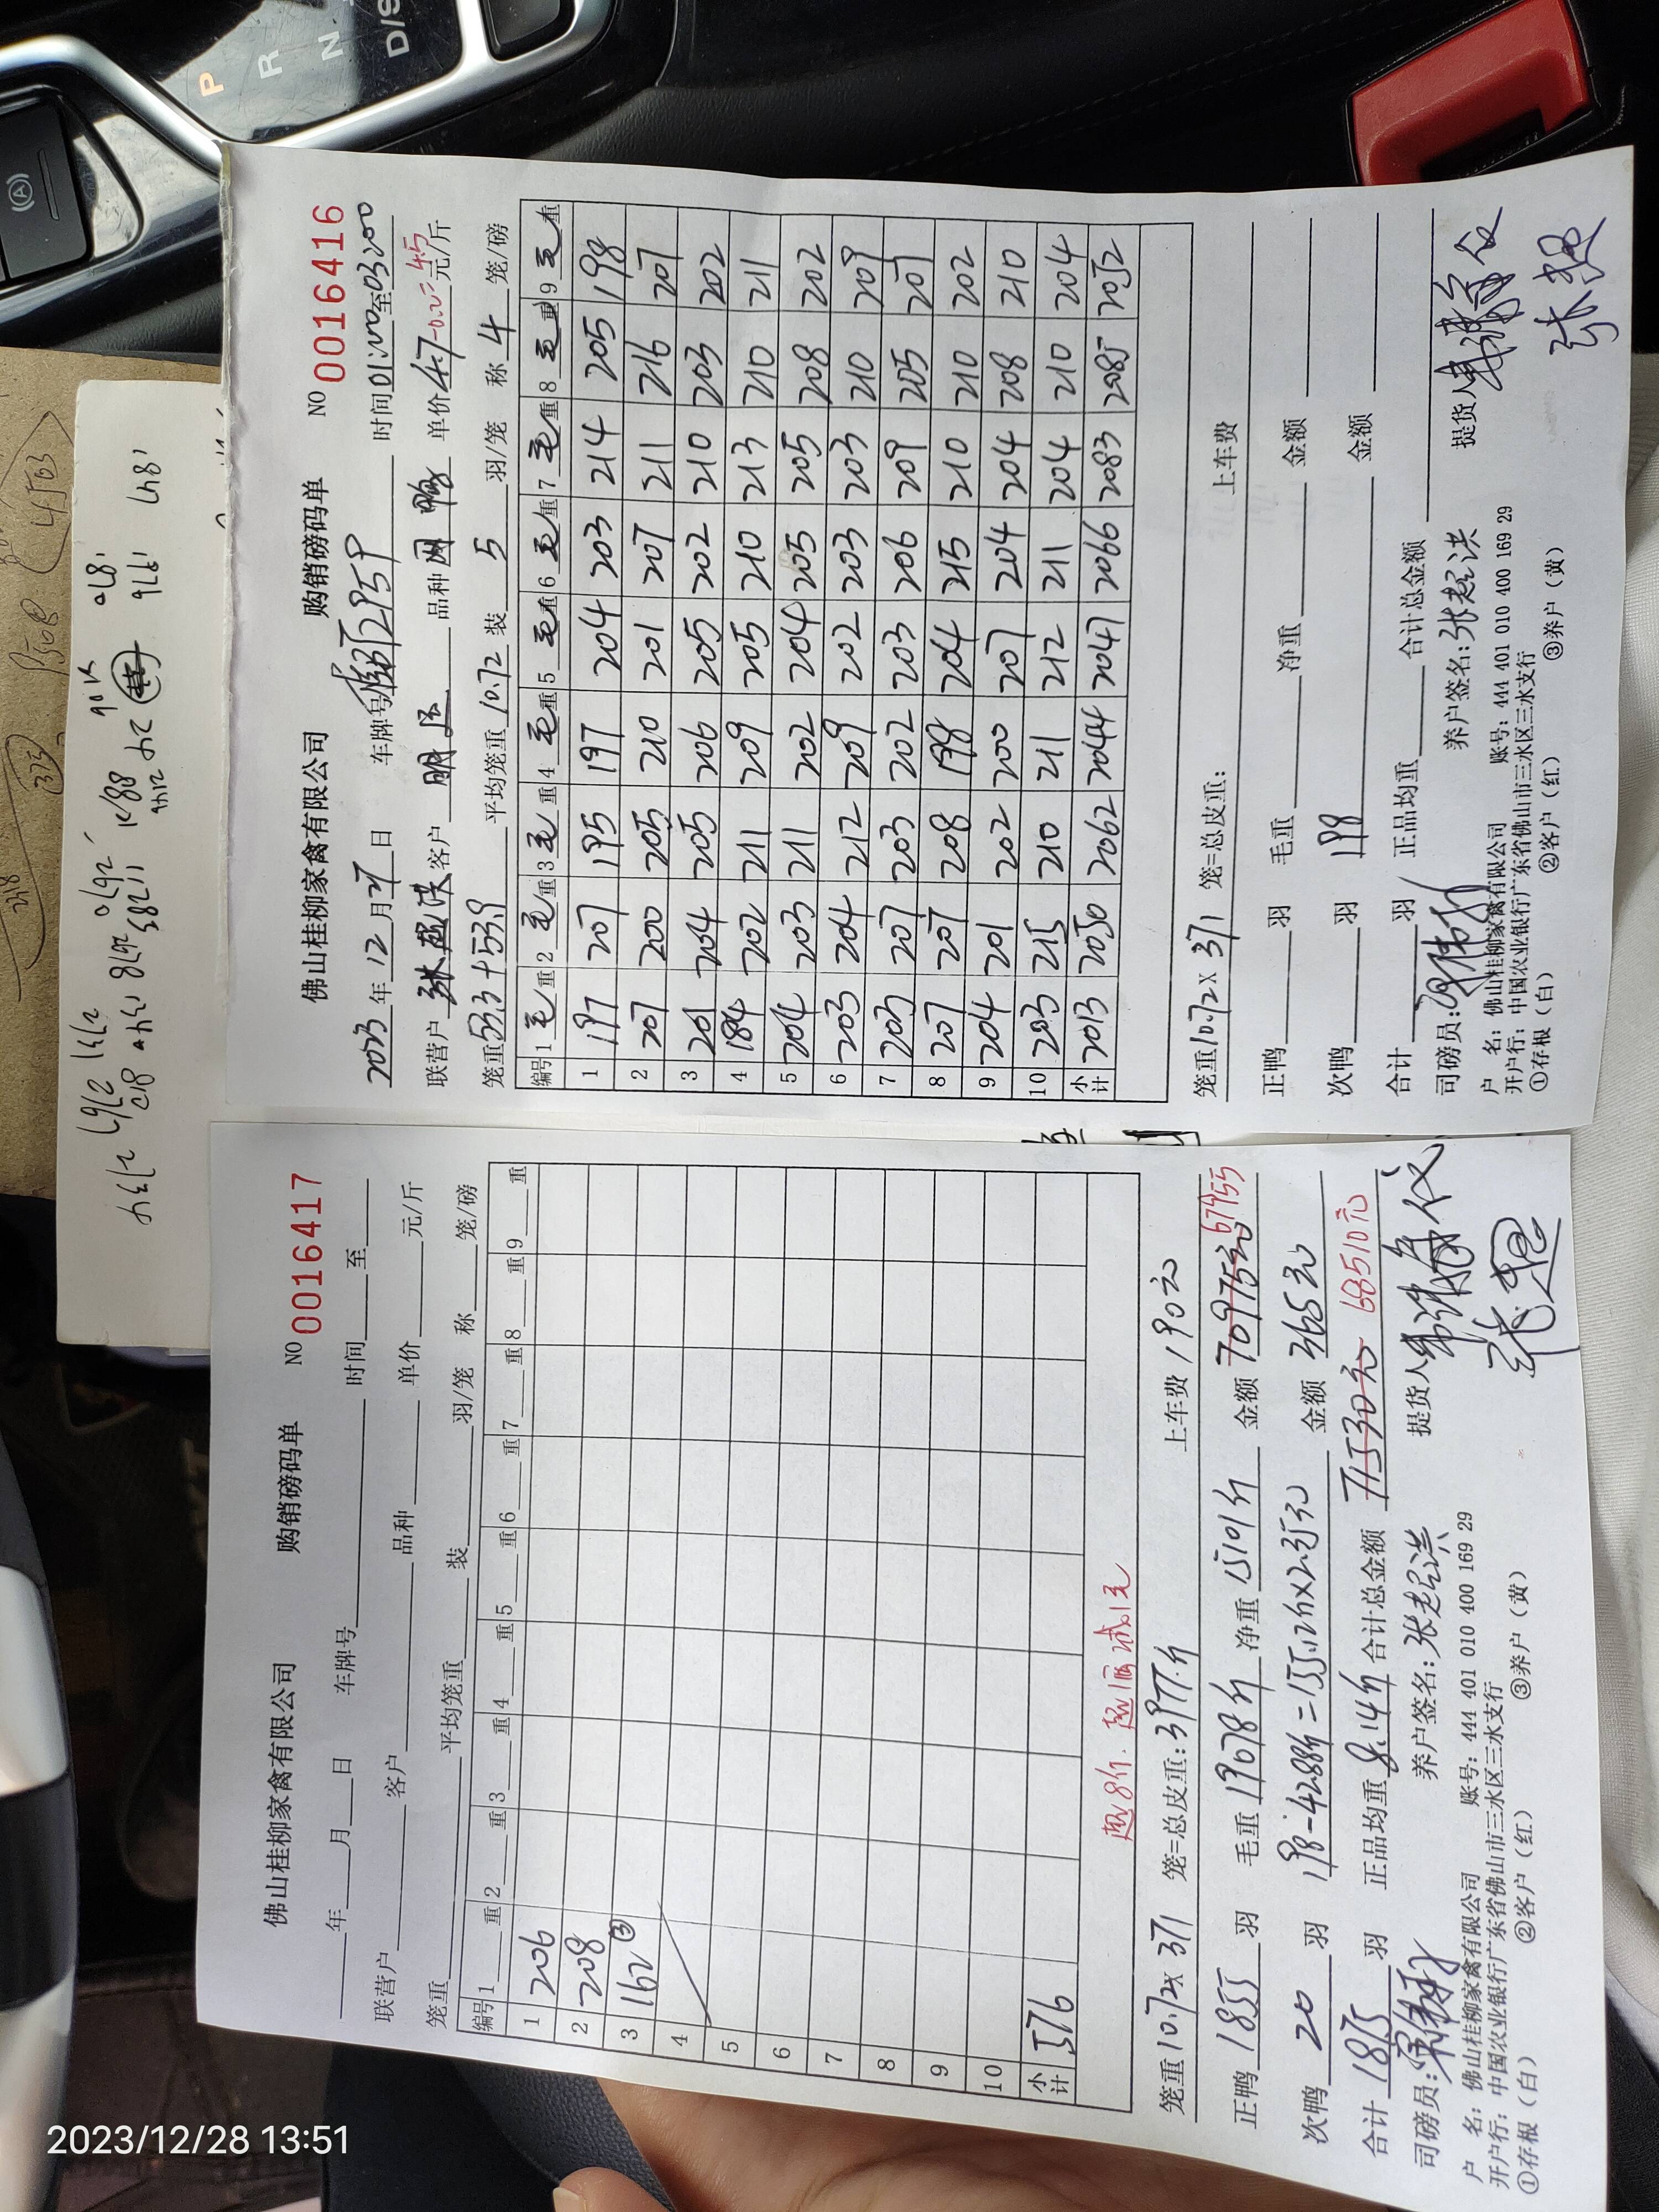 P
R
N
D/S
佛山桂柳家禽有限公司 购销磅码单 NO 0016416
2023年12月27日 车牌号 285P 时间01:00至03:00
联营户 张超洪 客户 明 品种 鸭 单价4.7-0.2=4.5元/斤
笼重53.3+53.9 平均笼重10.72 装 5 羽/笼 称 4 笼/磅
编号 1毛重 2毛重 3毛重 4毛重 5毛重 6毛重 7毛重 8毛重 9毛重
1 197 207 195 197 204 203 214 205 198
2 207 200 205 210 201 207 211 216 207
3 201 204 205 206 205 202 210 203 202
4 184 202 211 209 205 210 213 210 211
5 204 203 211 202 204 205 205 208 202
6 203 204 212 209 202 203 203 210 209
7 203 207 203 202 203 206 209 205 207
8 207 207 208 198 204 215 210 210 202
9 204 201 202 200 207 204 204 208 210
10 203 215 210 211 212 211 204 210 204
小计 2013 2050 2062 2044 2047 2066 2083 2085 2052
笼重10.72×371 笼=总皮重: 上车费
正鸭 羽 毛重 净重 金额
次鸭 羽 198 金额
合计 羽 正品均重 合计总金额
司磅员: 养户签名:张超洪 提货人
户 名:佛山桂柳家禽有限公司 账号:444 401 010 400 169 29
开户行:中国农业银行广东省佛山市三水区三水支行
①存根(白) ②客户(红) ③养户(黄)
佛山桂柳家禽有限公司 购销磅码单 NO 0016417
年 月 日 车牌号 时间 至
联营户 客户 品种 单价 元/斤
笼重 平均笼重 装 羽/笼 称 笼/磅
编号 1 重 2 重 3 重 4 重 5 重 6 重 7 重 8 重 9 重
1 206
2 208
3 162③
4
5
6
7
8
9
10
小计 576
超8斤.超1两减0.1元
笼重10.72×371 笼=总皮重:3977斤 上车费190元
正鸭1855羽 毛重19078斤 净重15101斤 金额70975元 67955
次鸭20羽 198-42.88斤=155.12斤×2.35元 金额365元
合计1875羽 正品均重8.14斤 合计总金额71530元 68510元
司磅员: 养户签名:张超洪 提货人
户 名:佛山桂柳家禽有限公司 账号:444 401 010 400 169 29
开户行:中国农业银行广东省佛山市三水区三水支行
①存根(白) ②客户(红) ③养户(黄)
2023/12/28 13:51